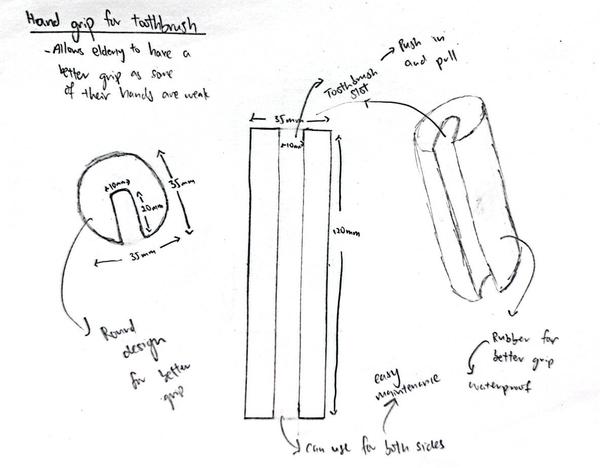 Hand grip for toothbrush
- Allows elderly to have a
better grip as some
of their hands are weak
Push in
and pull
Toothbrush
slot
35mm
10mm
120mm
10mm
20mm
35mm
35mm
Round
design
for better
grip
Rubber for
better grip
waterproof
easy
maintenance
can use for both sides